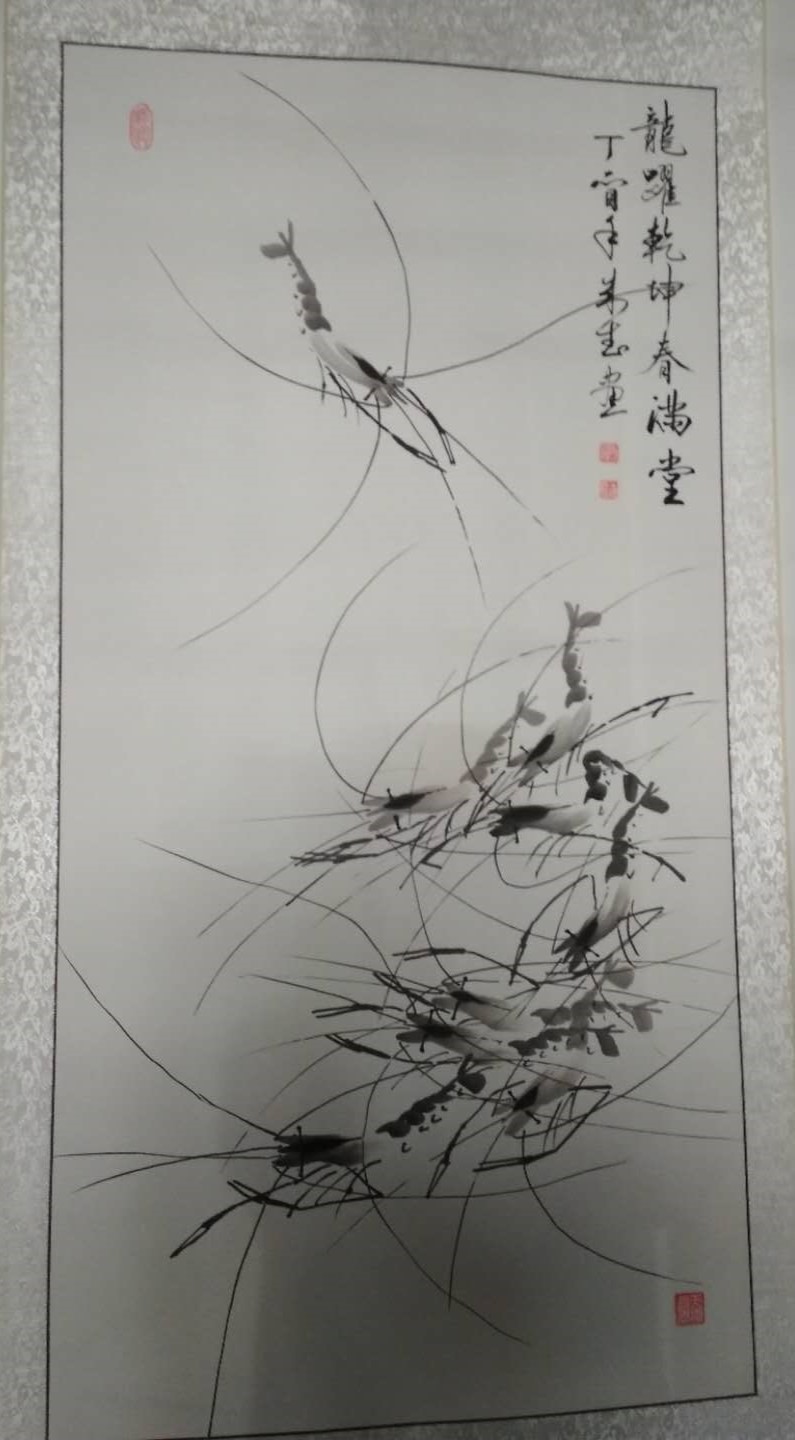 龍躍乾坤春満堂
丁酉年 畫